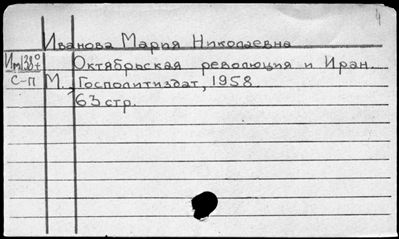 Иванова Мария Николаевна
Октябрьская революция и Иран.
С-П М., Госполитиздат, 1958.
63 стр.